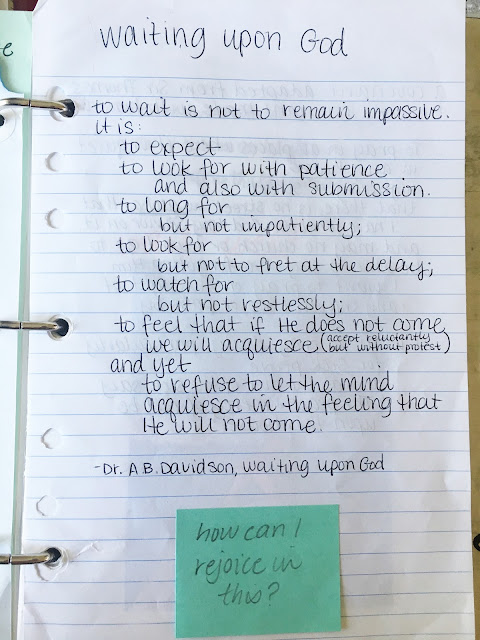 e
waiting upon God
to wait is not to remain impassive.
it is:
to expect
to look for with patience
and also with submission.
to long for
but not impatiently;
to look for
but not to fret at the delay;
to watch for
but not restlessly;
to feel that if He does not come
we will acquiesce (accept reluctantly but without protest)
and yet
to refuse to let the mind
acquiesce in the feeling that
He will not come.
-Dr. A.B. Davidson, waiting upon God
how can I
rejoice in
this?